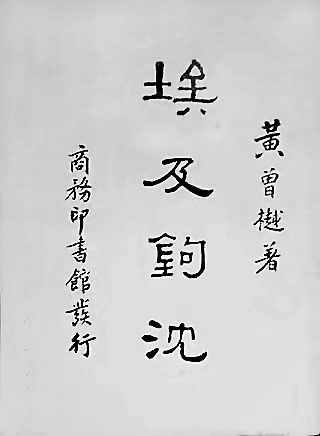 黃曾樾著
埃及鉤沈
商務印書館發行